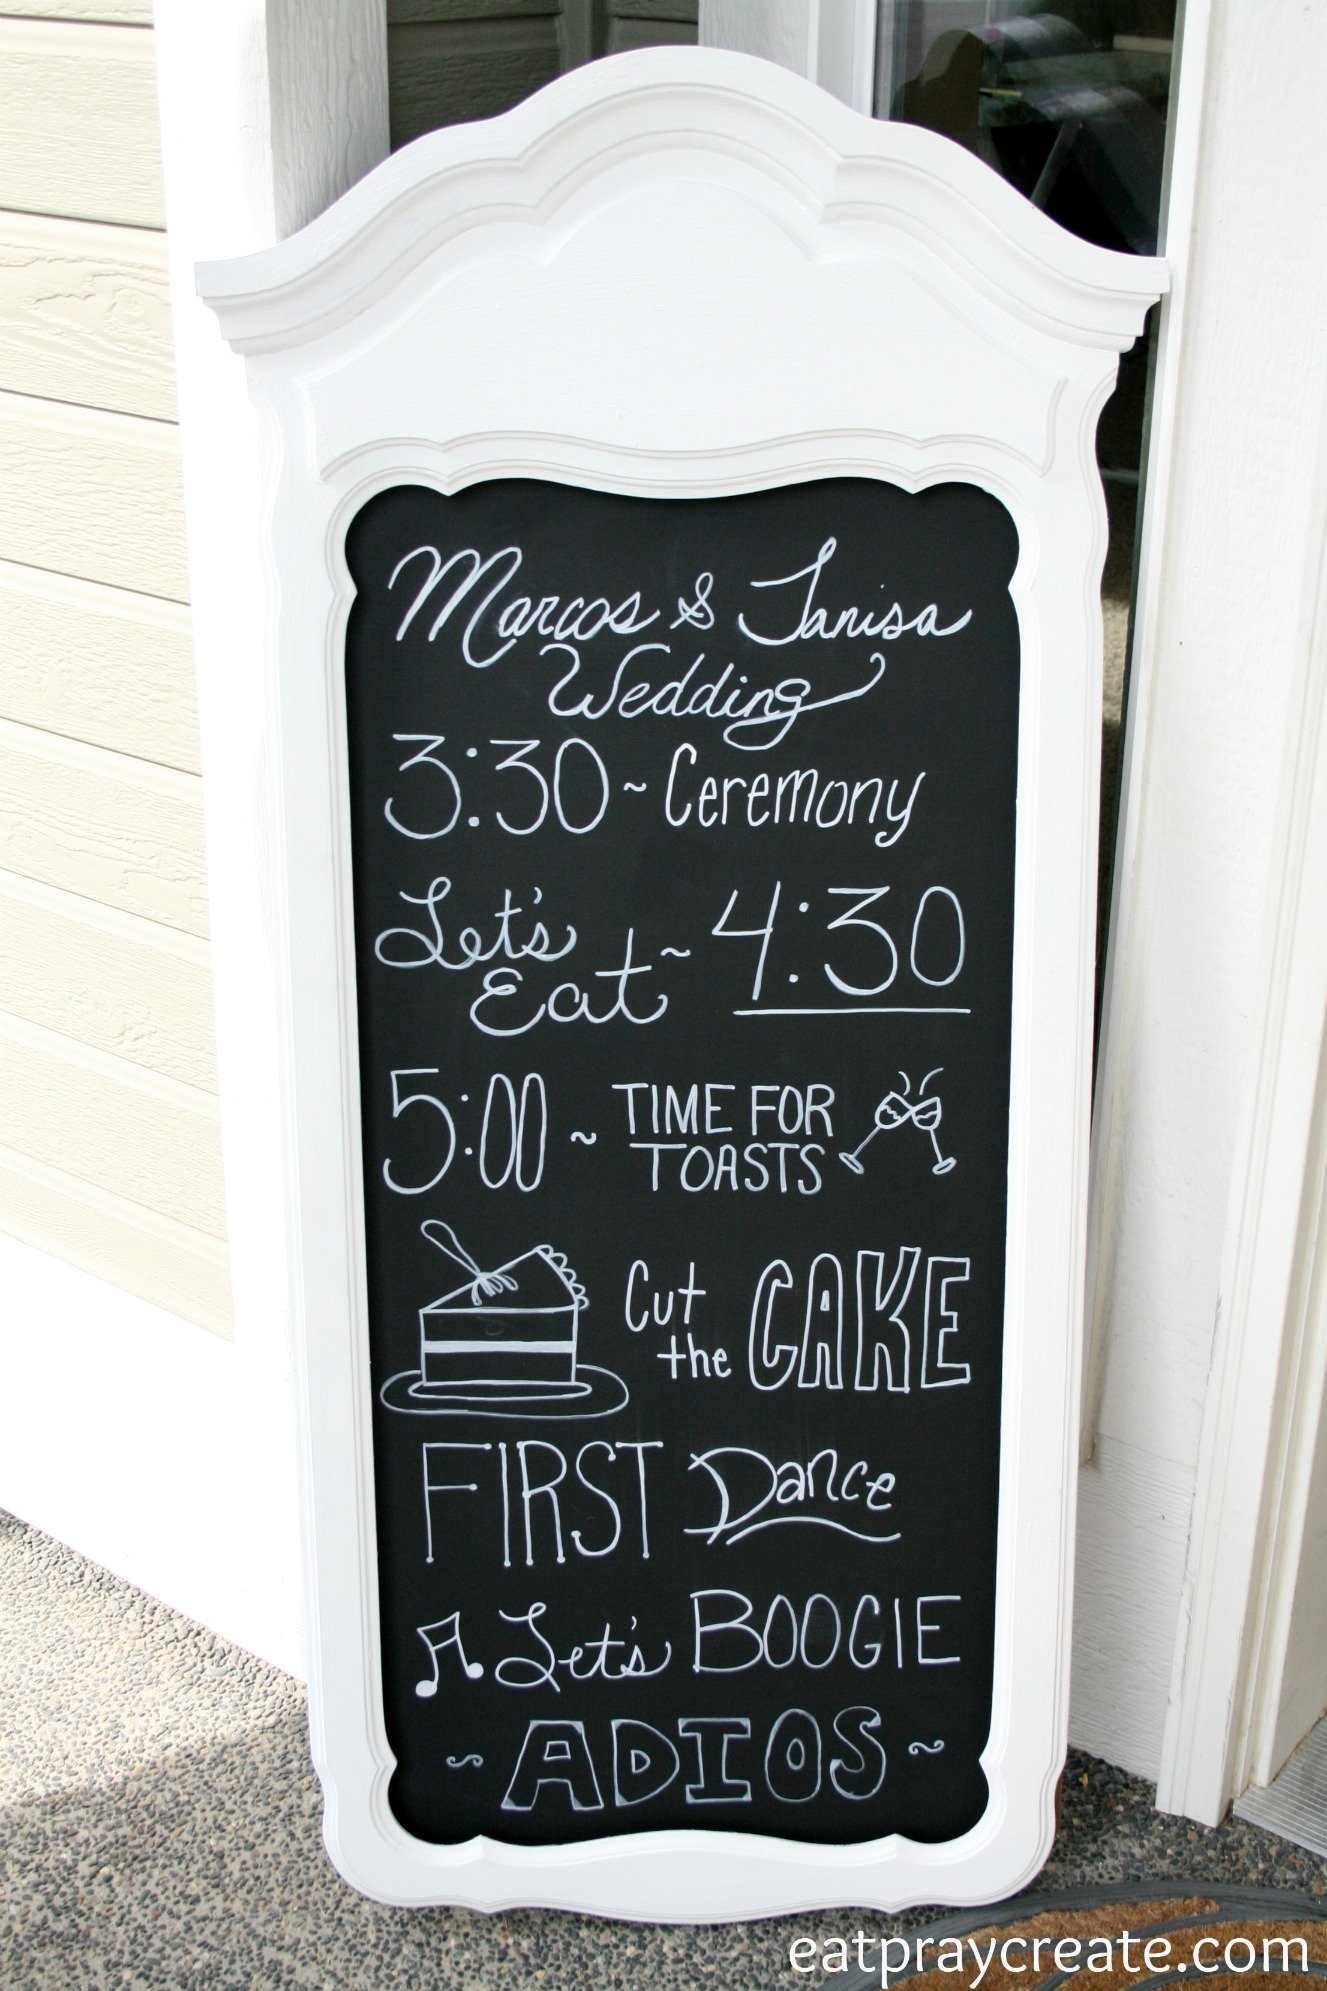 Marcos & Tanisa
Wedding
3:30 ~ Ceremony
Let's
Eat ~ 4:30
5:00 ~ TIME FOR
TOASTS
Cut
the CAKE
FIRST Dance
Let's BOOGIE
~ ADIOS ~
eatpraycreate.com